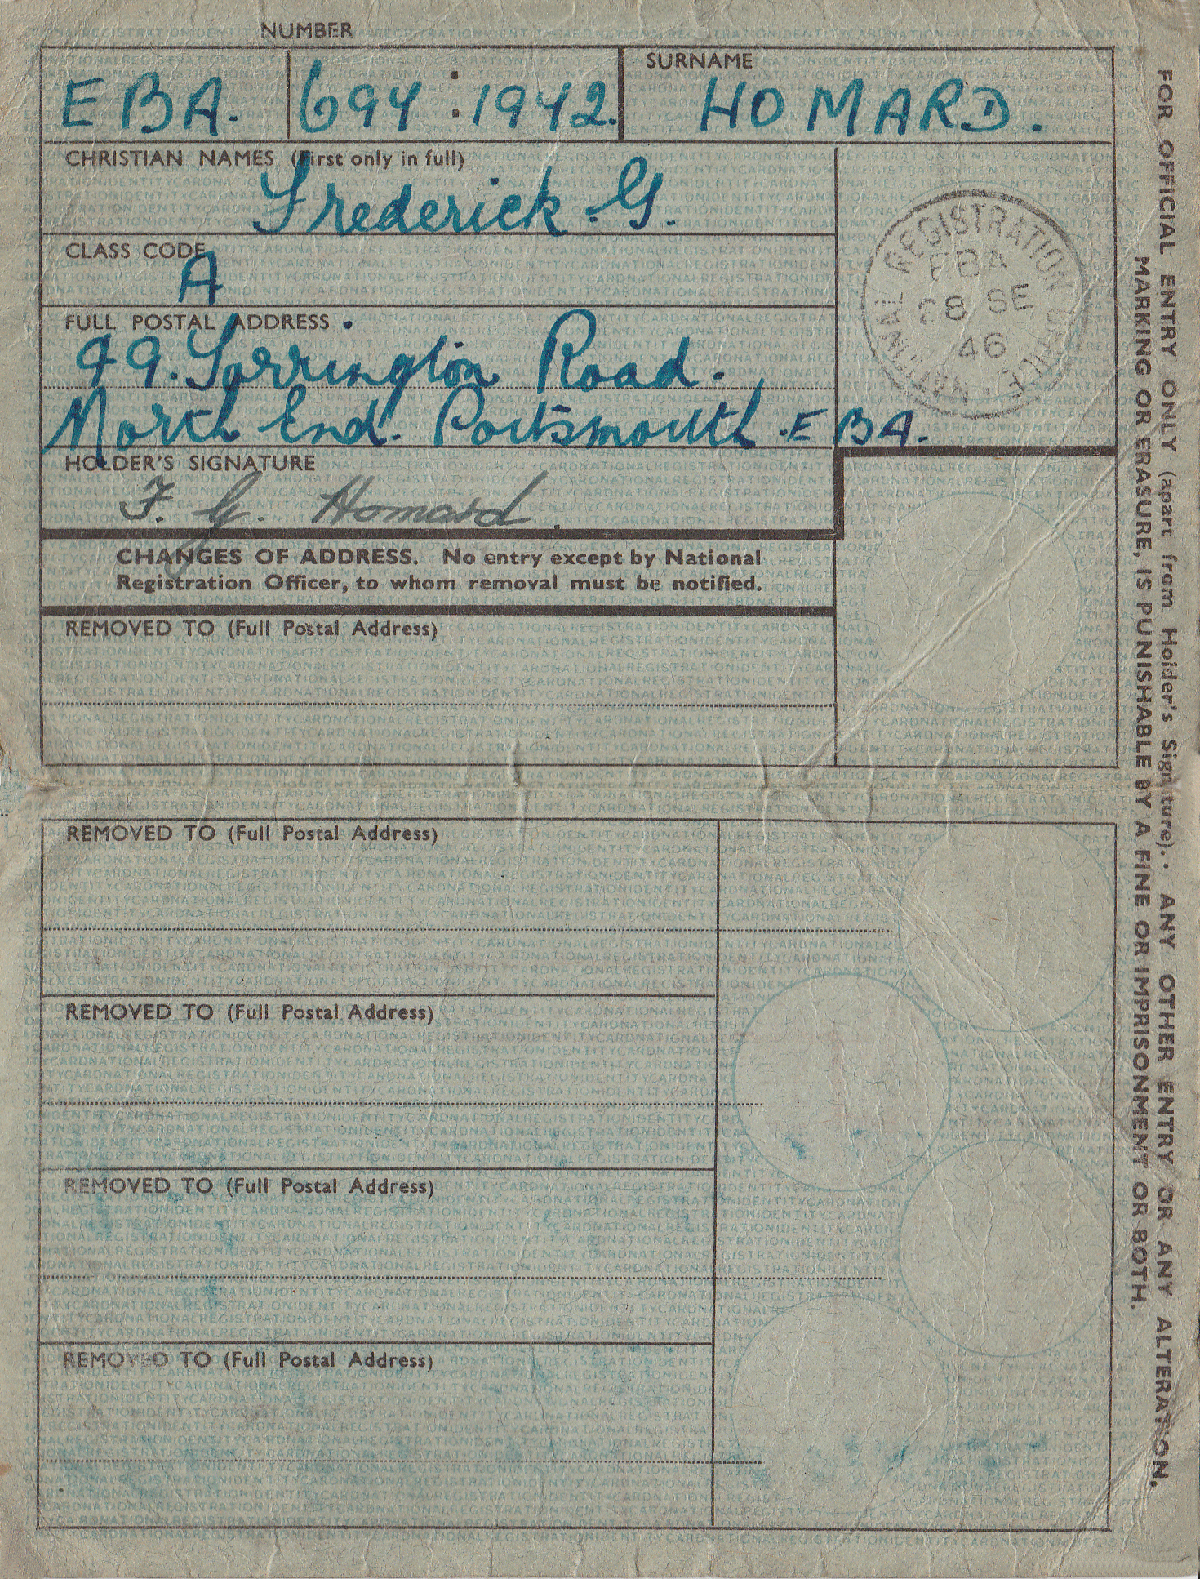 NUMBER
EBA. 694 : 1942.
SURNAME
HOMARD.
CHRISTIAN NAMES (First only in full)
Frederick. G.
CLASS CODE
A
FULL POSTAL ADDRESS.
99. Torrington Road.
North End. Portsmouth. EBA.
NATIONAL REGISTRATION
EBA
28 SE
46
HOLDER'S SIGNATURE
F. G. Homard.
CHANGES OF ADDRESS. No entry except by National
Registration Officer, to whom removal must be notified.
REMOVED TO (Full Postal Address)
REMOVED TO (Full Postal Address)
REMOVED TO (Full Postal Address)
REMOVED TO (Full Postal Address)
REMOVED TO (Full Postal Address)
FOR OFFICIAL ENTRY ONLY (apart from Holder's Signature). ANY OTHER ENTRY OR ANY ALTERATION,
MARKING OR ERASURE, IS PUNISHABLE BY A FINE OR IMPRISONMENT OR BOTH.